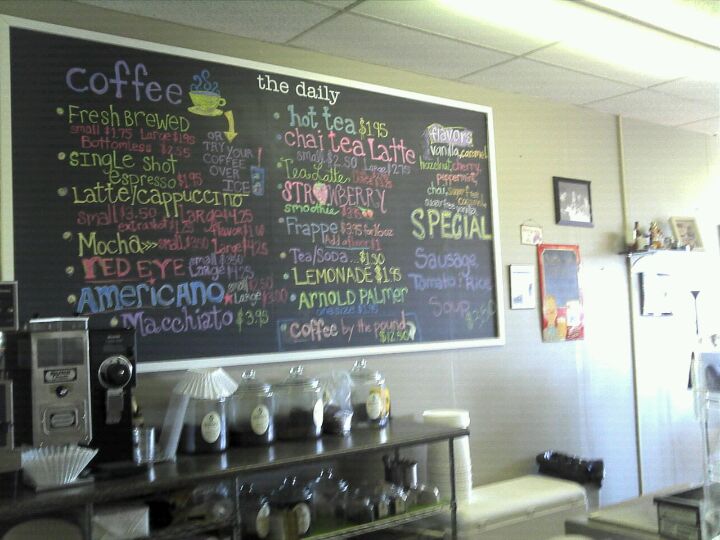 coffee
the daily
Fresh Brewed
small $1.75 Large $1.95
Bottomless $2.55
OR
TRY YOUR
COFFEE
OVER
ICE
single shot
espresso $1.95
Latte/cappuccino
small $3.50 Large $4.25
extra shot flavor
Mocha small $3.50
Large $4.25
RED EYE small
Large $4.25
Americano small $2.50
Large $3.00
Macchiato $3.95
hot tea $1.95
chai tea Latte
small $2.50 Large $2.75
Tea Latte
STRAWBERRY
smoothie
Frappe $3.95 for 16oz
Add a flavor $1
Tea/Soda... $1.50
LEMONADE $1.95
ARNOLD PALMER
one size $1.95
coffee by the pound
$12.50
flavors
vanilla, caramel
hazelnut, cherry,
peppermint,
chai, sugar free
caramel,
sugar free vanilla
SPECIAL
Sausage,
Tomato & Rice
Soup $2.50